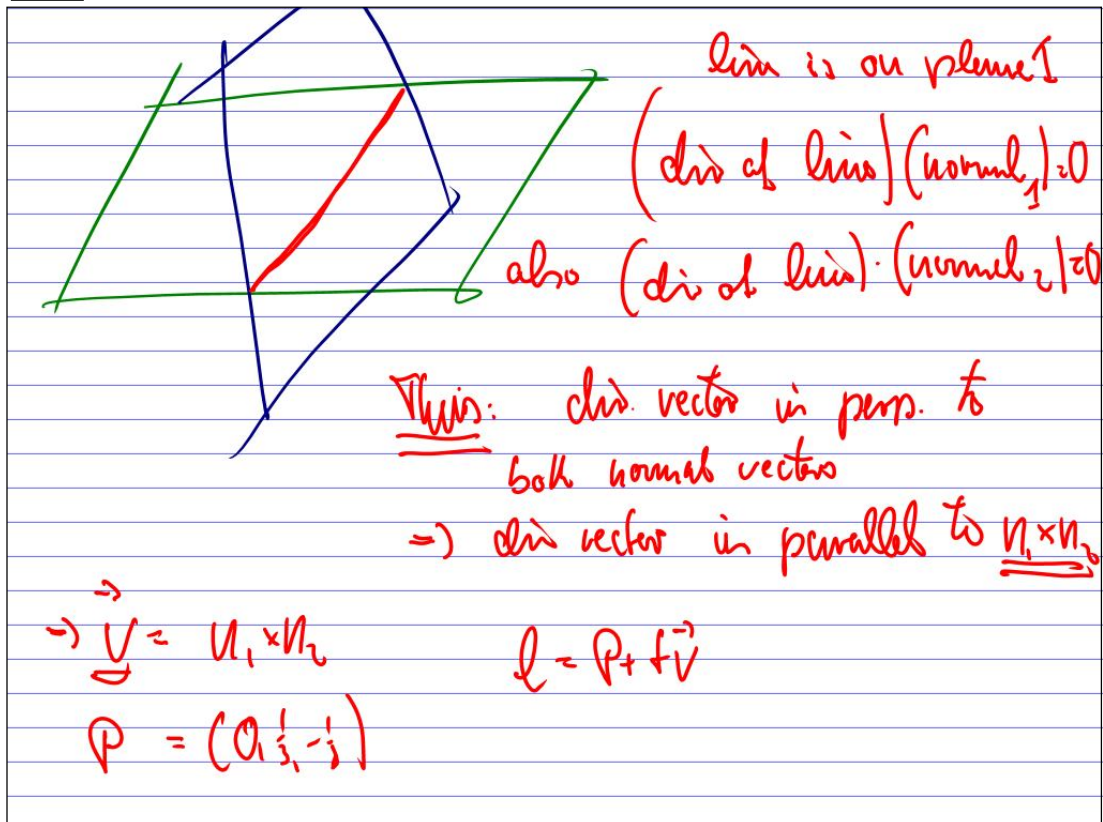 line is on plane 1
(dir of line) (normal₁)=0
also (dir of line)·(normal₂)=0
Thus: dir. vector is perp. to
both normal vectors
=> dir vector is parallel to n₁×n₂
=> v⃗ = n₁×n₂
l = P + t v⃗
P = (0, 1/3, -1/3)